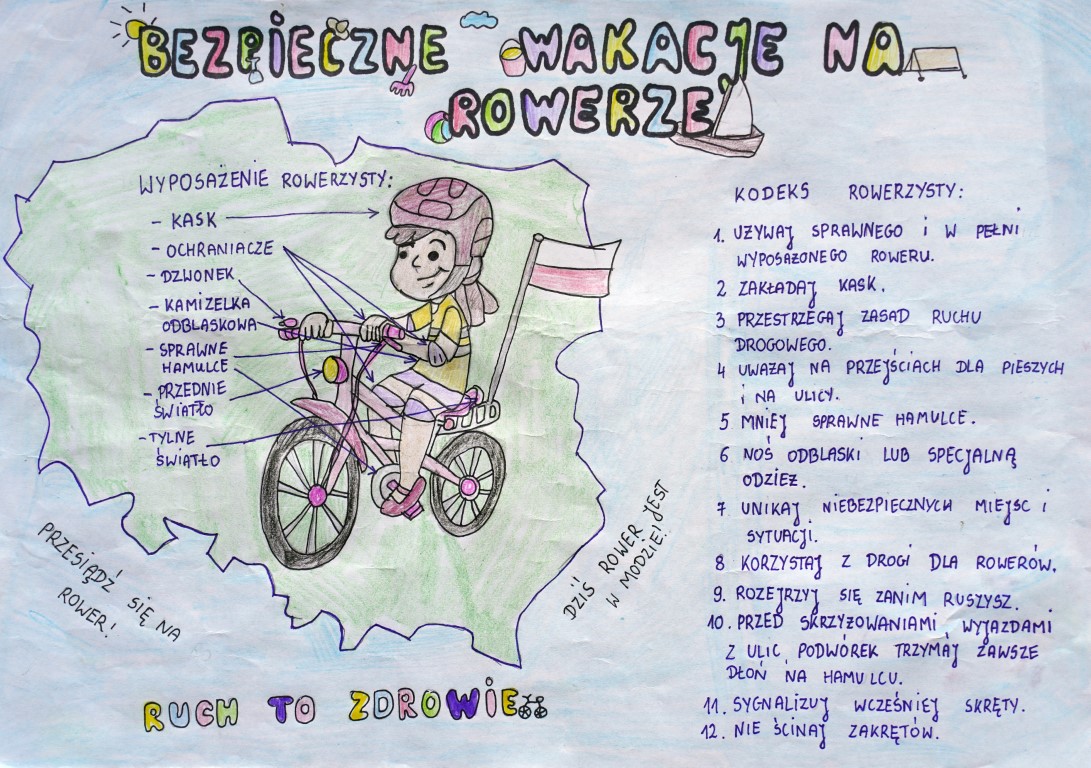 BEZPIECZNE WAKACJE NA
ROWERZE
WYPOSAŻENIE ROWERZYSTY:
- KASK
- OCHRANIACZE
- DZWONEK
- KAMIZELKA
ODBLASKOWA
- SPRAWNE
HAMULCE
- PRZEDNIE
ŚWIATŁO
- TYLNE
ŚWIATŁO
PRZESIĄDŹ SIĘ NA
ROWER!
DZIŚ ROWER JEST
W MODZIE!
RUCH TO ZDROWIE
KODEKS ROWERZYSTY:
1. UŻYWAJ SPRAWNEGO i W PEŁNI
WYPOSAŻONEGO ROWERU.
2 ZAKŁADAJ KASK.
3 PRZESTRZEGAJ ZASAD RUCHU
DROGOWEGO.
4 UWAŻAJ NA PRZEJŚCIACH DLA PIESZYCH
i NA ULICY.
5. MNIEJ SPRAWNE HAMULCE.
6 NOŚ ODBLASKI LUB SPECJALNĄ
ODZIEŻ.
7. UNIKAJ NIEBEZPIECZNYCH MIEJSC i
SYTUACJI.
8 KORZYSTAJ Z DROGI DLA ROWERÓW.
9. ROZEJRZYJ SIĘ ZANIM RUSZYSZ.
10. PRZED SKRZYŻOWANIAMI, WYJAZDAMI
Z ULIC, PODWÓREK TRZYMAJ ZAWSZE
DŁOŃ NA HAMULCU.
11. SYGNALIZUJ WCZEŚNIEJ SKRĘTY.
12. NIE ŚCINAJ ZAKRĘTÓW.